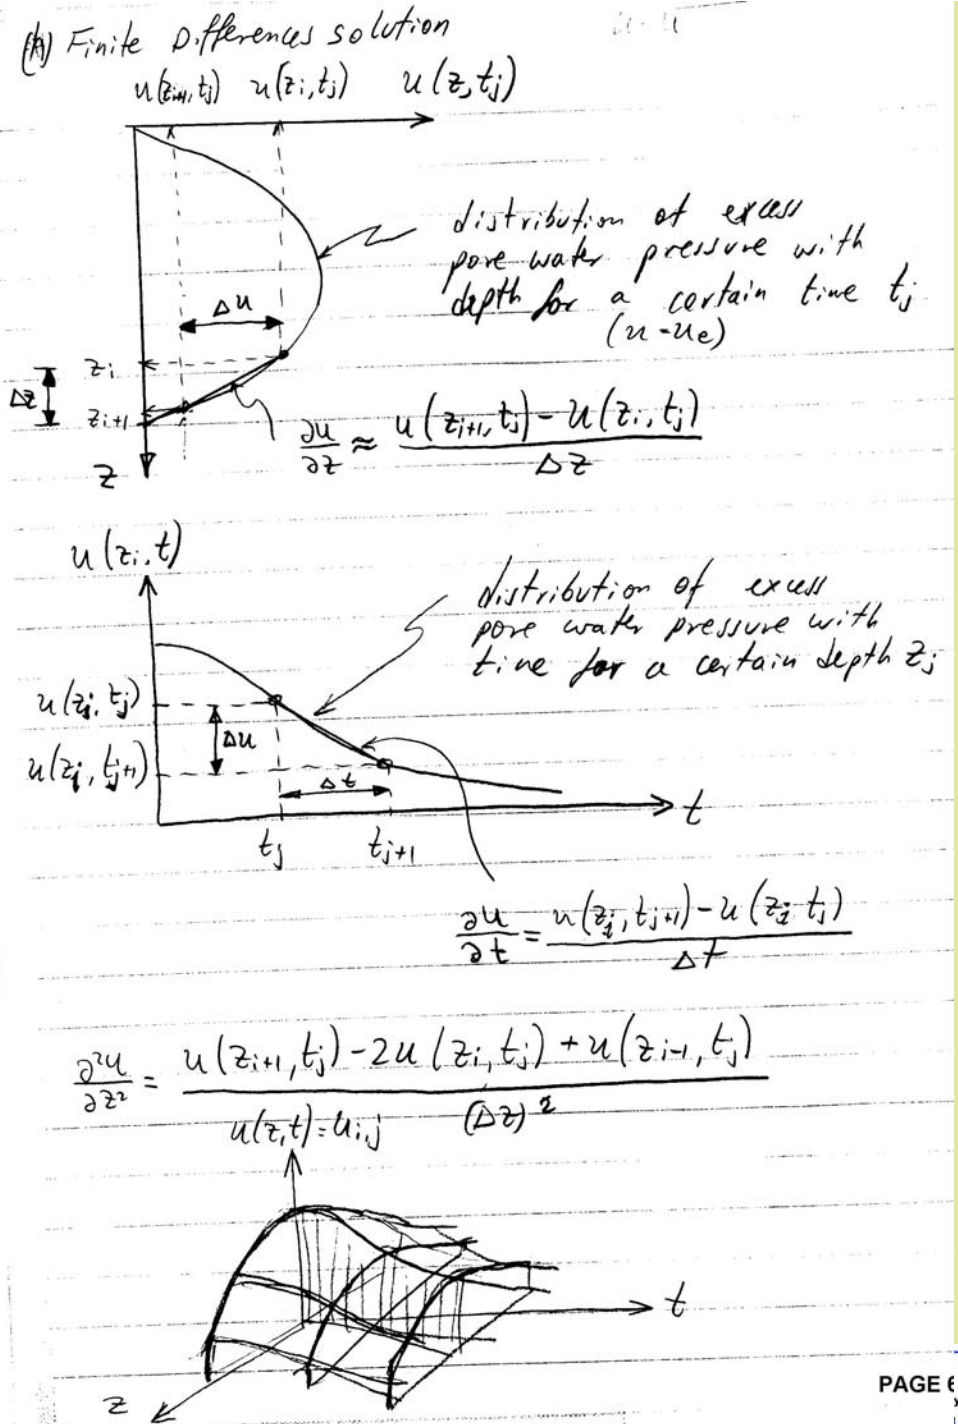 (b) Finite Differences solution
u(zi+1, tj) u(zi, tj) u(z, tj)
distribution of excess
pore water pressure with
depth for a certain time tj
(u-ue)
Δu
zi
Δz
zi+1
z
∂u/∂z ≈ (u(zi+1, tj) - u(zi, tj))/Δz
u(zi, t)
distribution of excess
pore water pressure with
time for a certain depth zj
u(zi, tj)
Δu
u(zi, tj+1)
Δt
t
tj tj+1
∂u/∂t = (u(zi, tj+1) - u(zi, tj))/Δt
∂²u/∂z² = (u(zi+1, tj) - 2u(zi, tj) + u(zi-1, tj))/(Δz)²
u(z,t)=ui,j
t
z
PAGE 6